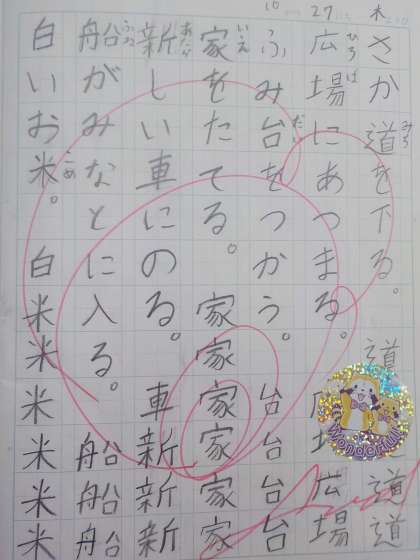 10 27 木
さか道を下る。 道道道
みち
広場にあつまる。 広場広場
ひろ ば
ふみ台をつかう。 台台台台
だい
家をたてる。 家家家家家家
いえ
新しい車にのる。 車新新新
あたら
船がみなとに入る。 船船船
ふね
白いお米。 白米米米米米米
こめ
Wonderful!